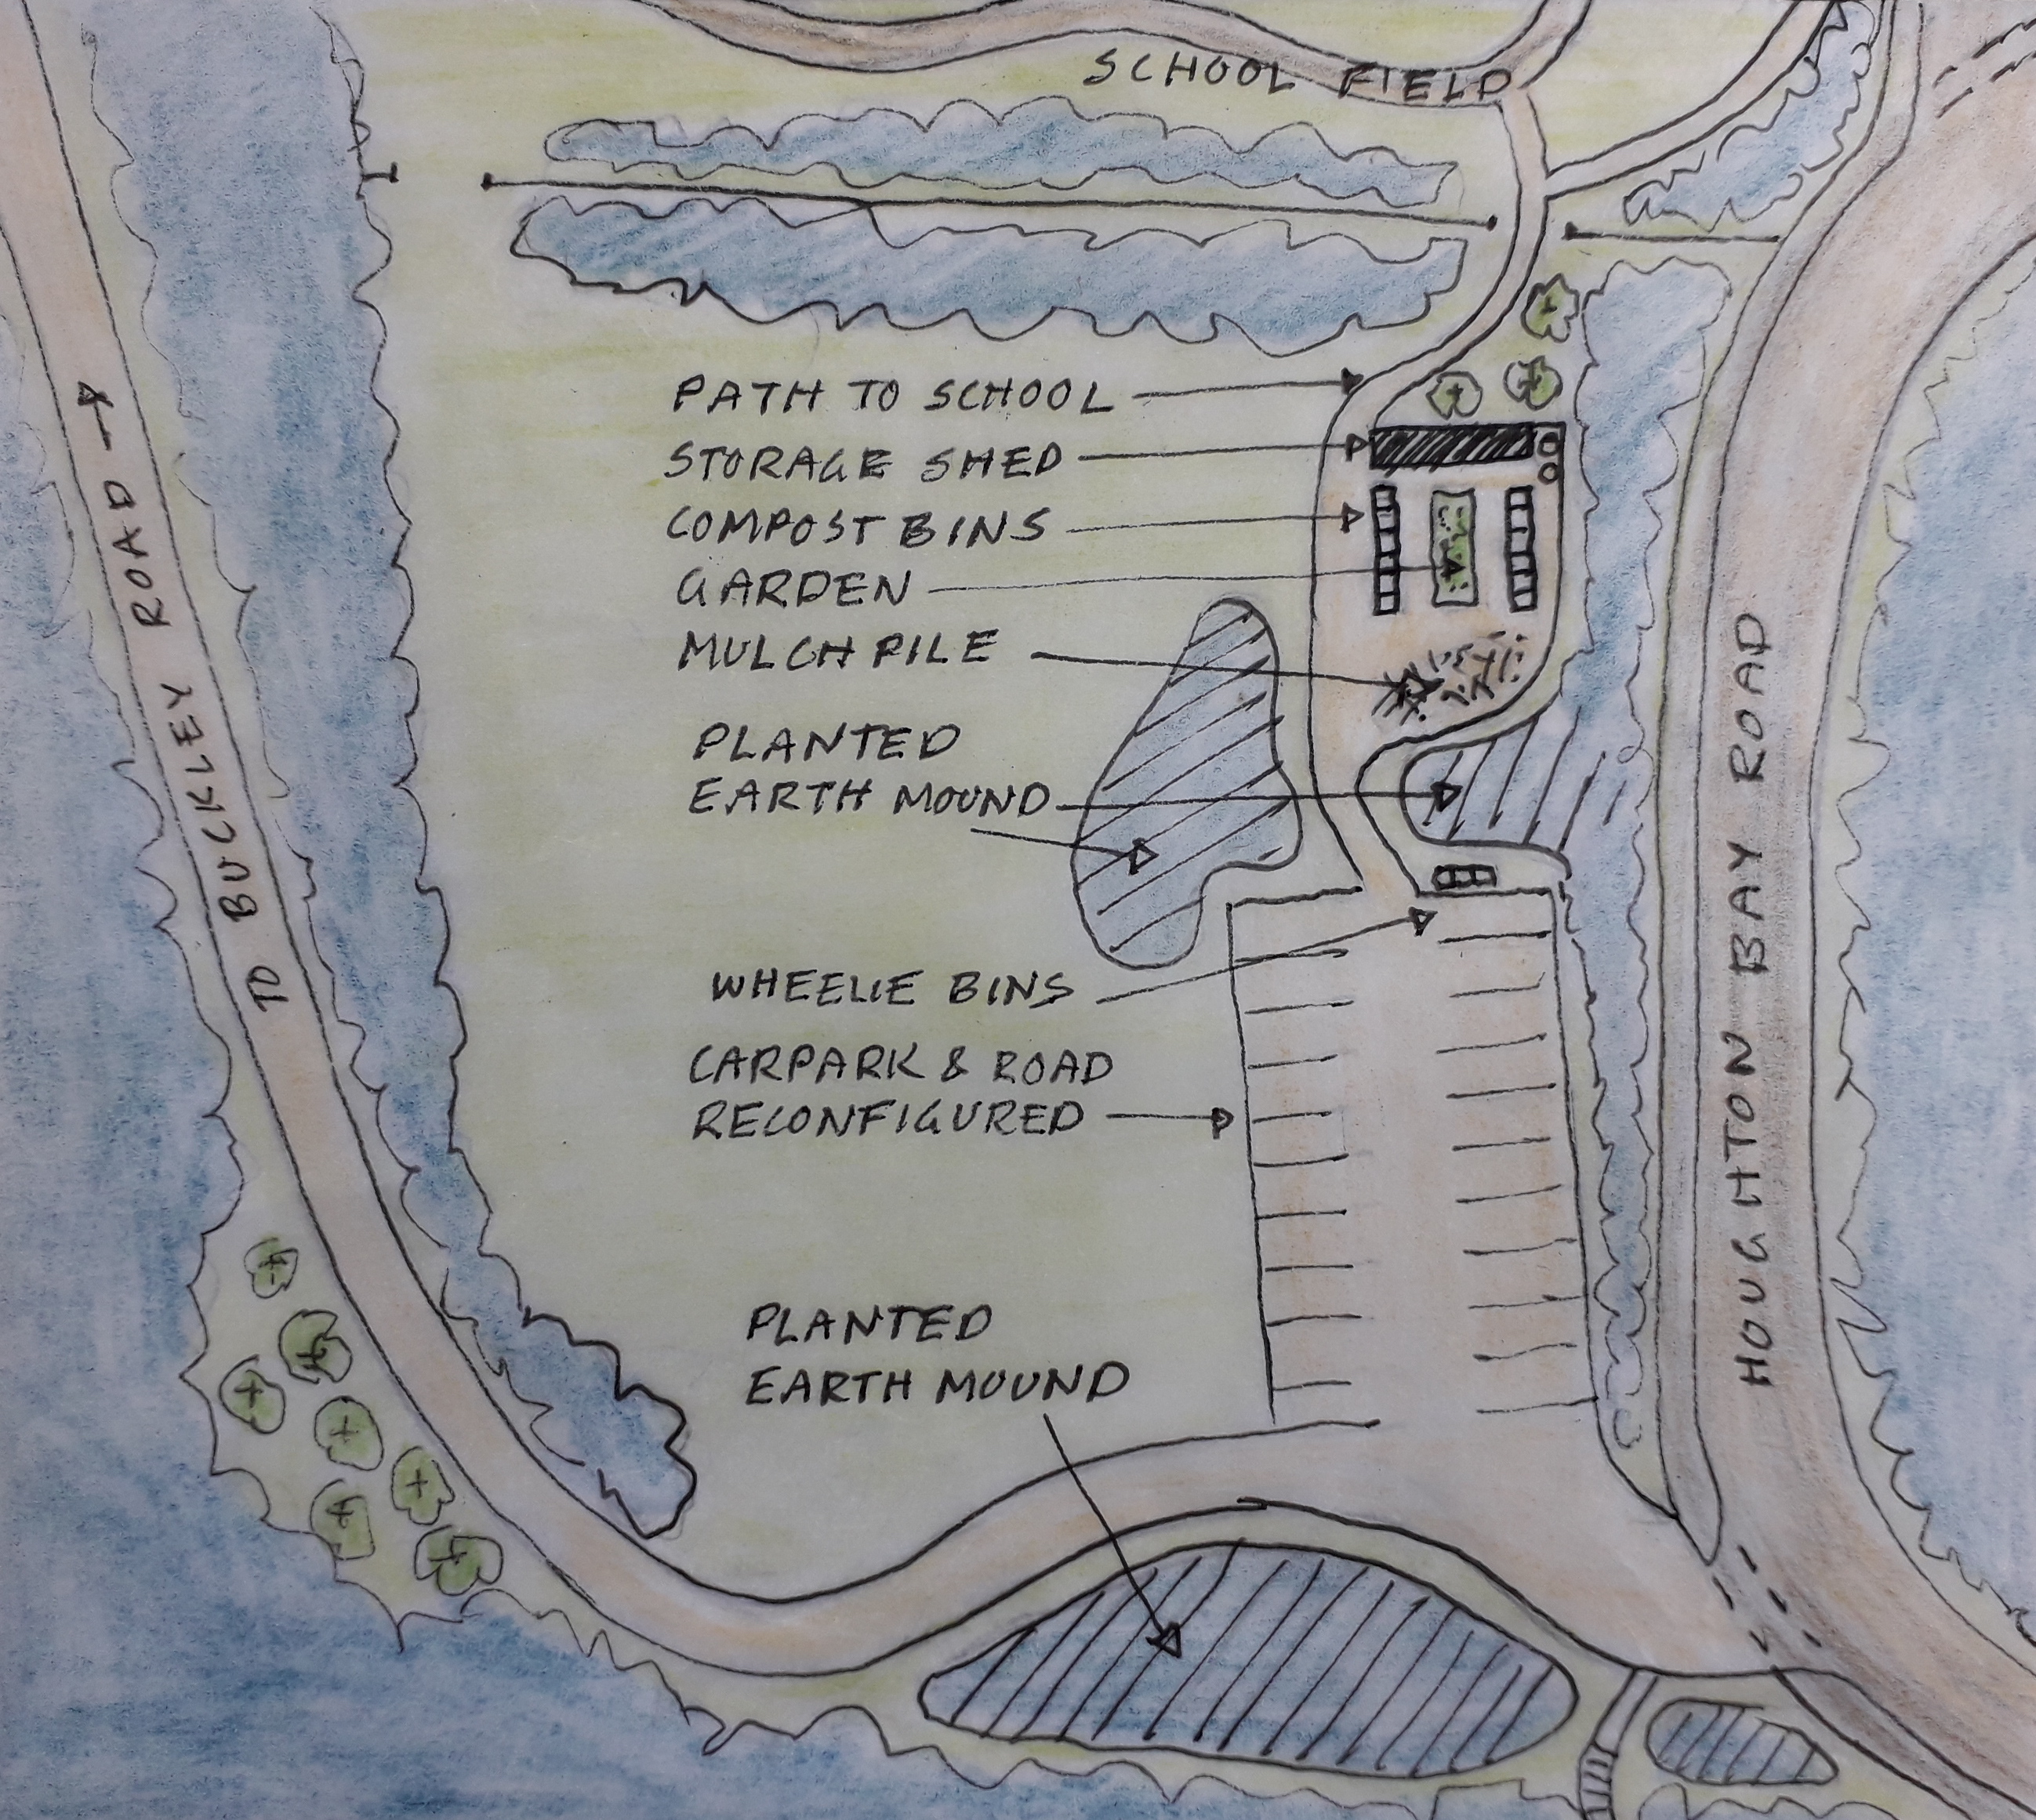 SCHOOL FIELD
PATH TO SCHOOL
STORAGE SHED
COMPOST BINS
GARDEN
MULCH PILE
PLANTED
EARTH MOUND
WHEELIE BINS
CARPARK & ROAD
RECONFIGURED
PLANTED
EARTH MOUND
TO BUCKLEY ROAD →
HOUGHTON BAY ROAD